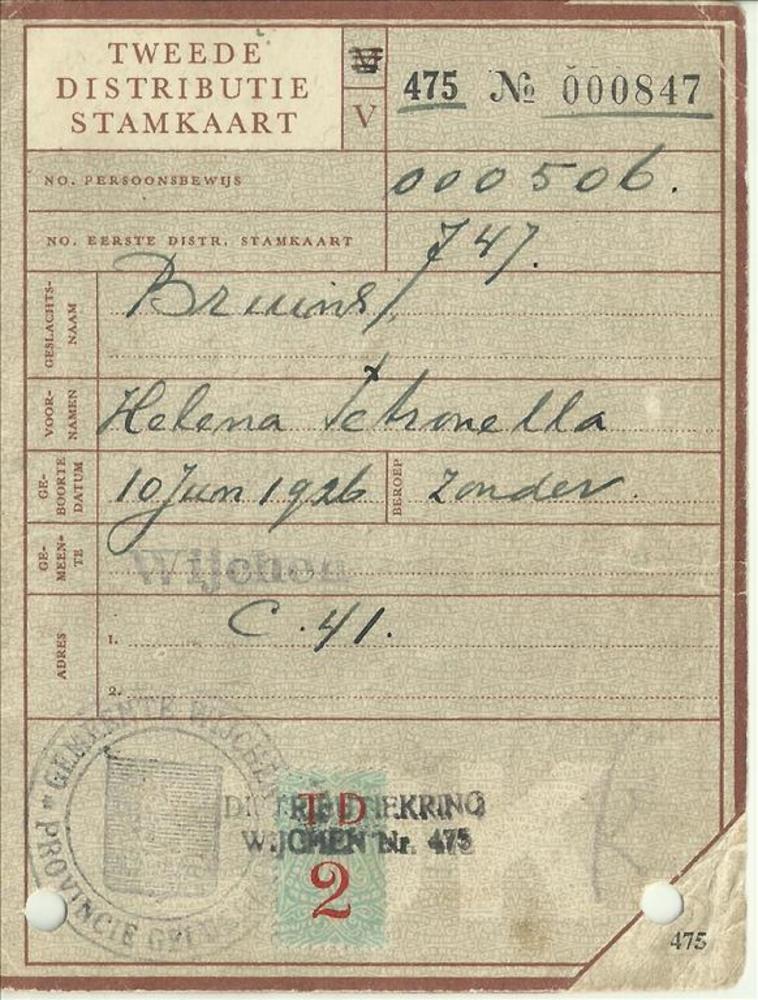 TWEEDE
DISTRIBUTIE
STAMKAART
V
475 № 000847
NO. PERSOONSBEWIJS 000506.
NO. EERSTE DISTR. STAMKAART 747.
GESLACHTS-
NAAM
Bruins
VOOR-
NAMEN
Helena Petronella
GE-
BOORTE
DATUM
10 Juni 1926
BEROEP
zonder.
GE-
MEEN-
TE
Wijchen
ADRES
1. C. 41.
2.
GEMEENTE WIJCHEN
PROVINCIE
TD
2
DISTRIBUTIEKRING
WIJCHEN Nr. 475
475